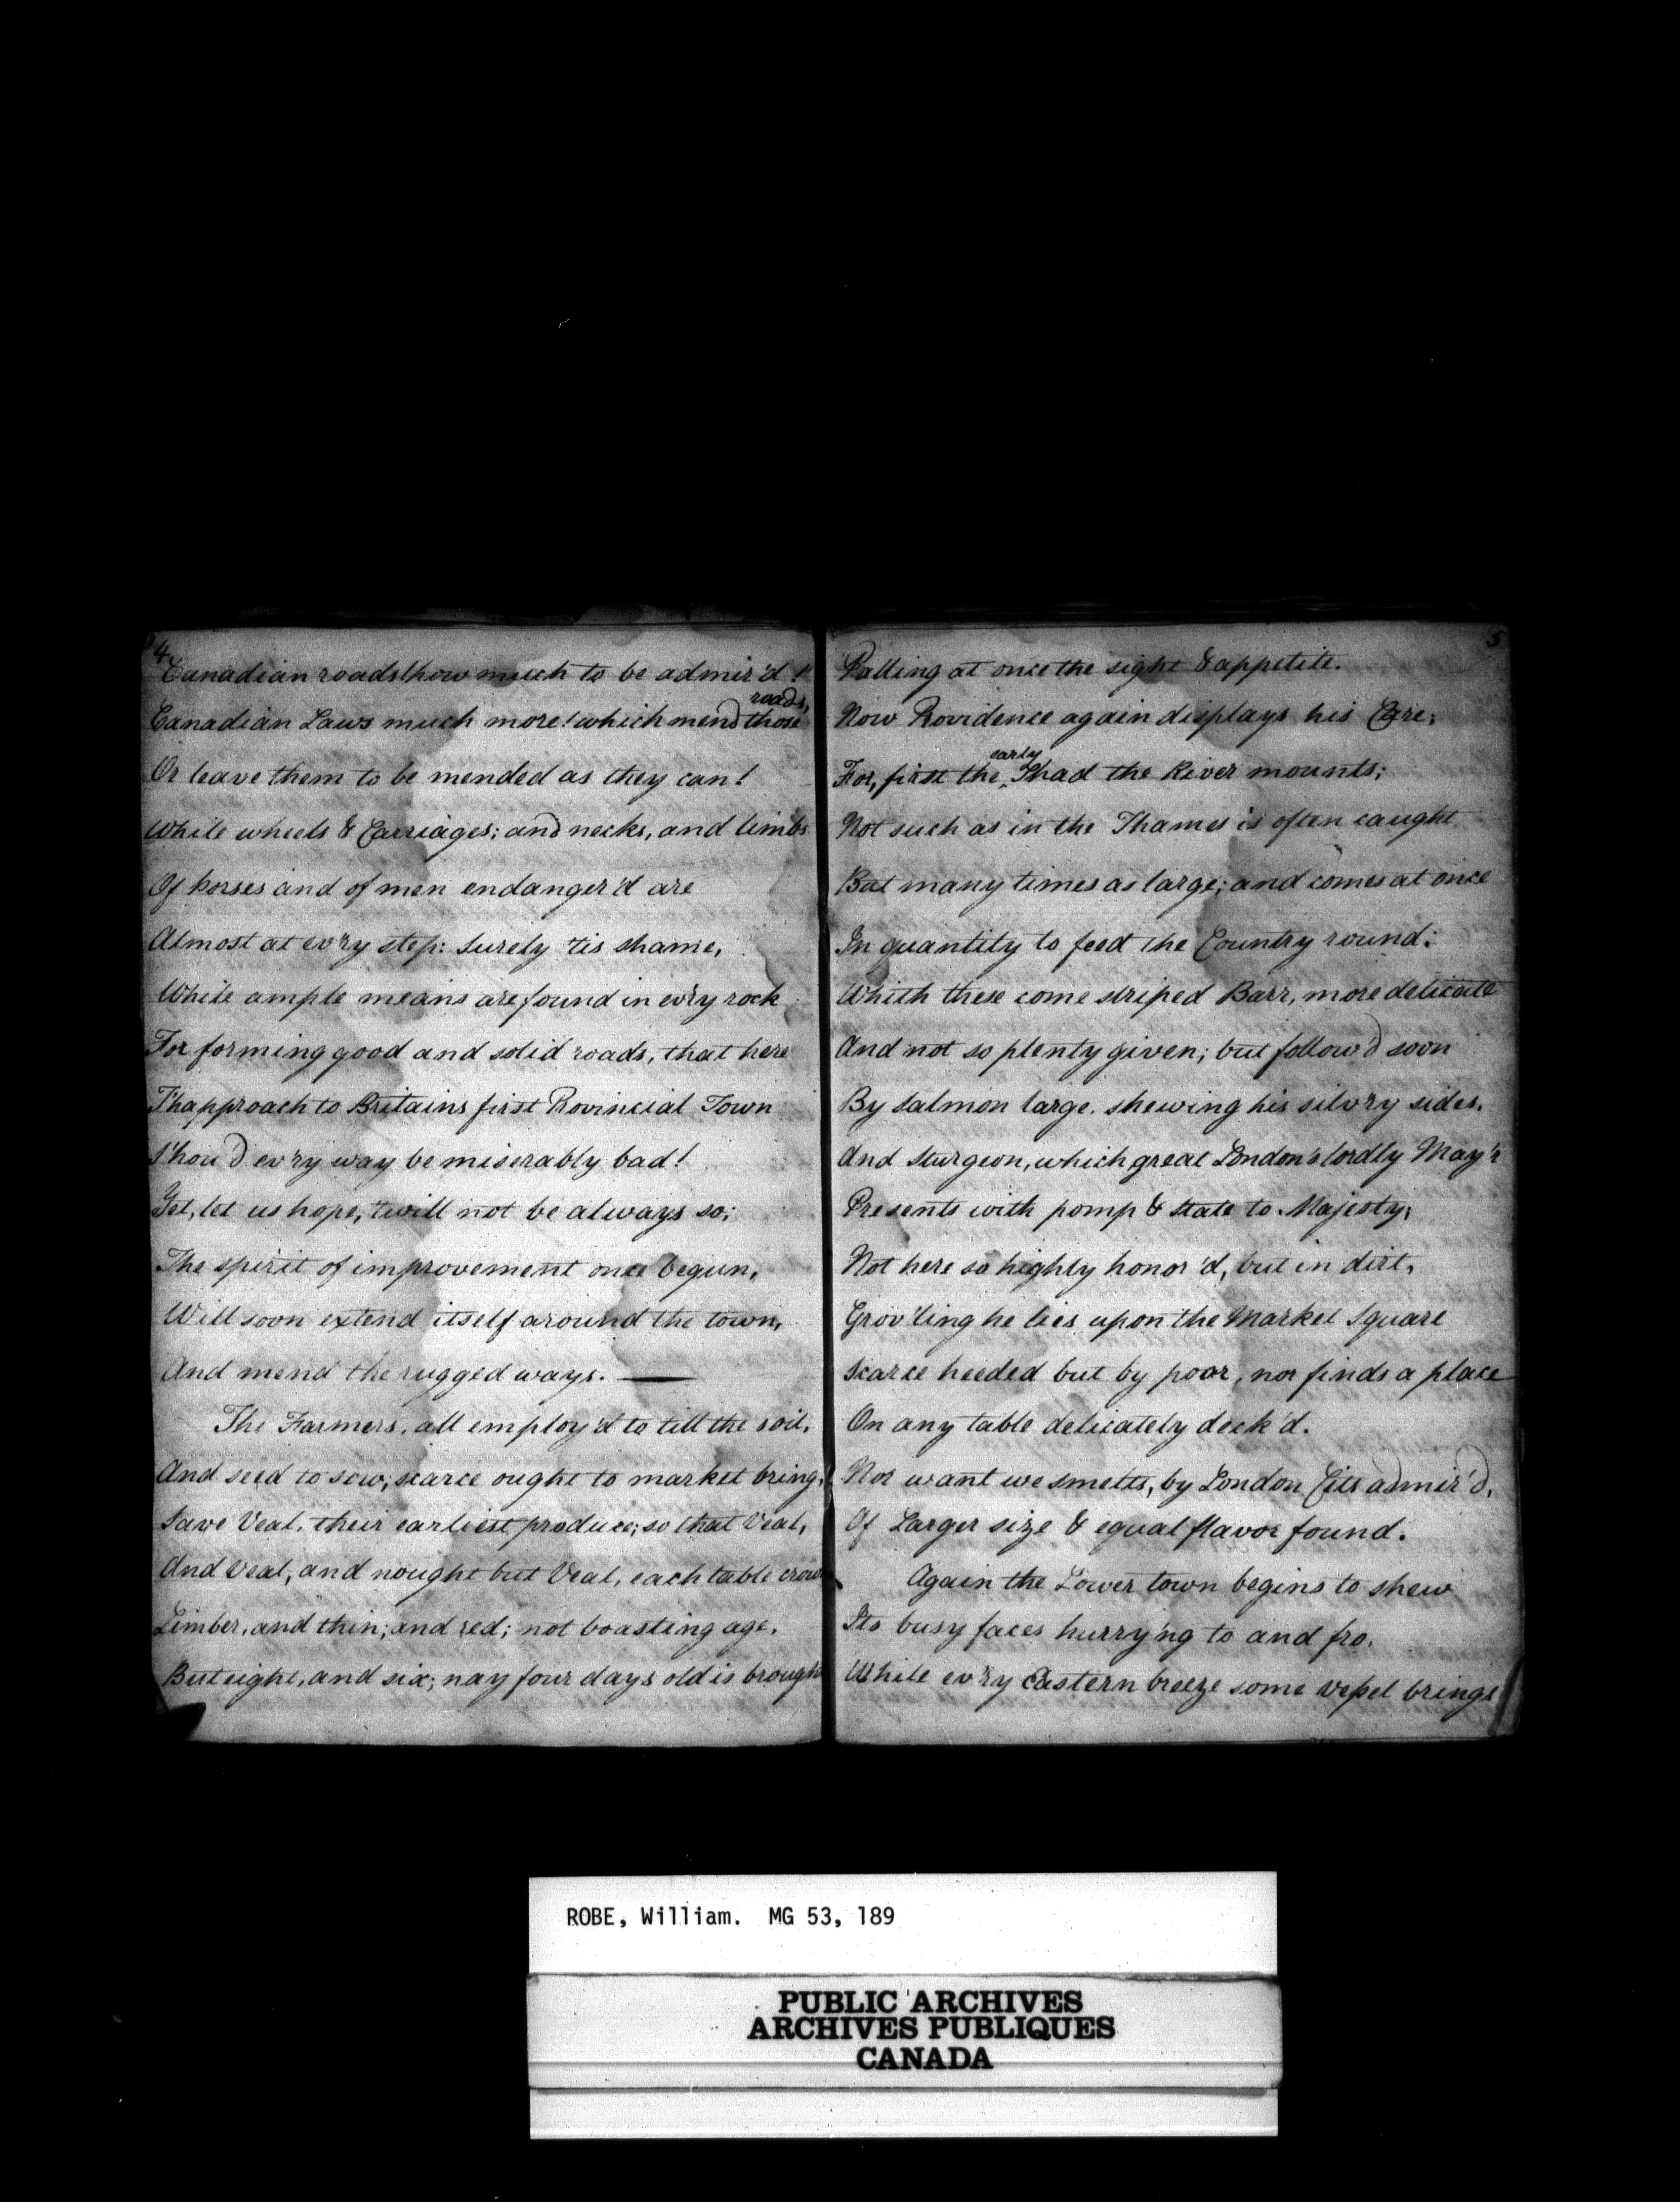 4
Canadian roads! how much to be admir'd!
Canadian Laws much more! which mend those roads,
Or leave them to be mended as they can!
While wheels & Carriages; and necks, and limbs
Of horses and of men endanger'd are
Almost at ev'ry step: Surely 'tis shame,
While ample means are found in ev'ry rock
For forming good and solid roads, that here
Th'approach to Britains first Provincial Town
Shou'd ev'ry way be miserably bad!
Yet, let us hope, 'twill not be always so;
The spirit of improvement once begun,
Will soon extend itself around the town,
And mend the rugged ways. —
The Farmers, all employ'd to till the soil,
And seed to sow, scarce ought to market bring,
Save Veal, their earliest produce; so that Veal,
And Veal, and nought but Veal, each table crow
Limber, and thin; and red; not boasting age,
But eight, and six; nay four days old is brough
5
Palling at once the sight & appetite.
Now Providence again displays his Care;
For, first the early Shad the River mounts;
Not such as in the Thames is often caught
But many times as large; and comes at once
In quantity to feed the Country round:
Whith these come striped Barr, more delicate
And not so plenty given; but follow'd soon
By Salmon large, shewing his silv'ry sides,
And Sturgeon, which great London's lordly May'r
Presents with pomp & state to Majesty;
Not here so highly honor'd, but in dirt,
Grov'ling he lies upon the Market Square
Scarce heeded but by poor, nor finds a place
On any table delicately deck'd.
Nor want we smelts, by London Cits admir'd,
Of Larger size & equal flavor found.
Again the Lower town begins to shew
Its busy faces hurry'ng to and fro,
While ev'ry Eastern breeze some vessel brings
ROBE, William. MG 53, 189
PUBLIC ARCHIVES
ARCHIVES PUBLIQUES
CANADA